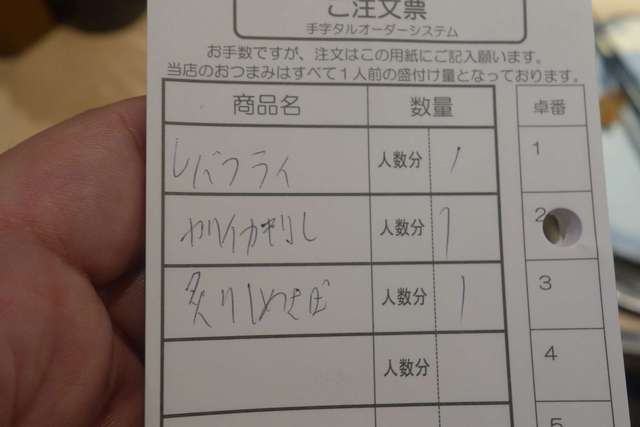 ご注文票
手字タルオーダーシステム
お手数ですが、注文はこの用紙にご記入願います。
当店のおつまみはすべて1人前の盛付け量となっております。
商品名 数量 卓番
レバフライ 人数分 1 1
ヤリイカ刺し 人数分 1 2
炙りしめさば 人数分 1 3
人数分 4
5